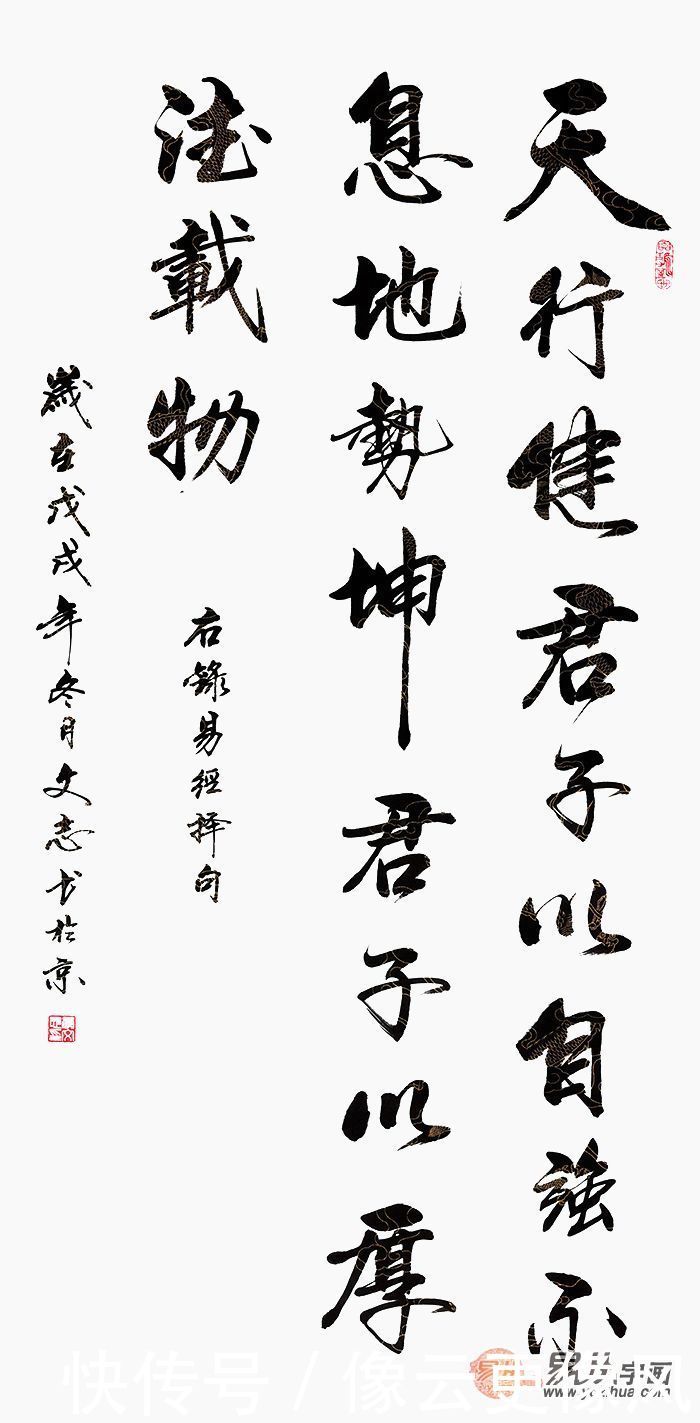 天行健君子以自強不
息地勢坤君子以厚
德載物
右錄易經擇句
歲在戊戌年冬月文志书於京
快传号 / 像云更像风